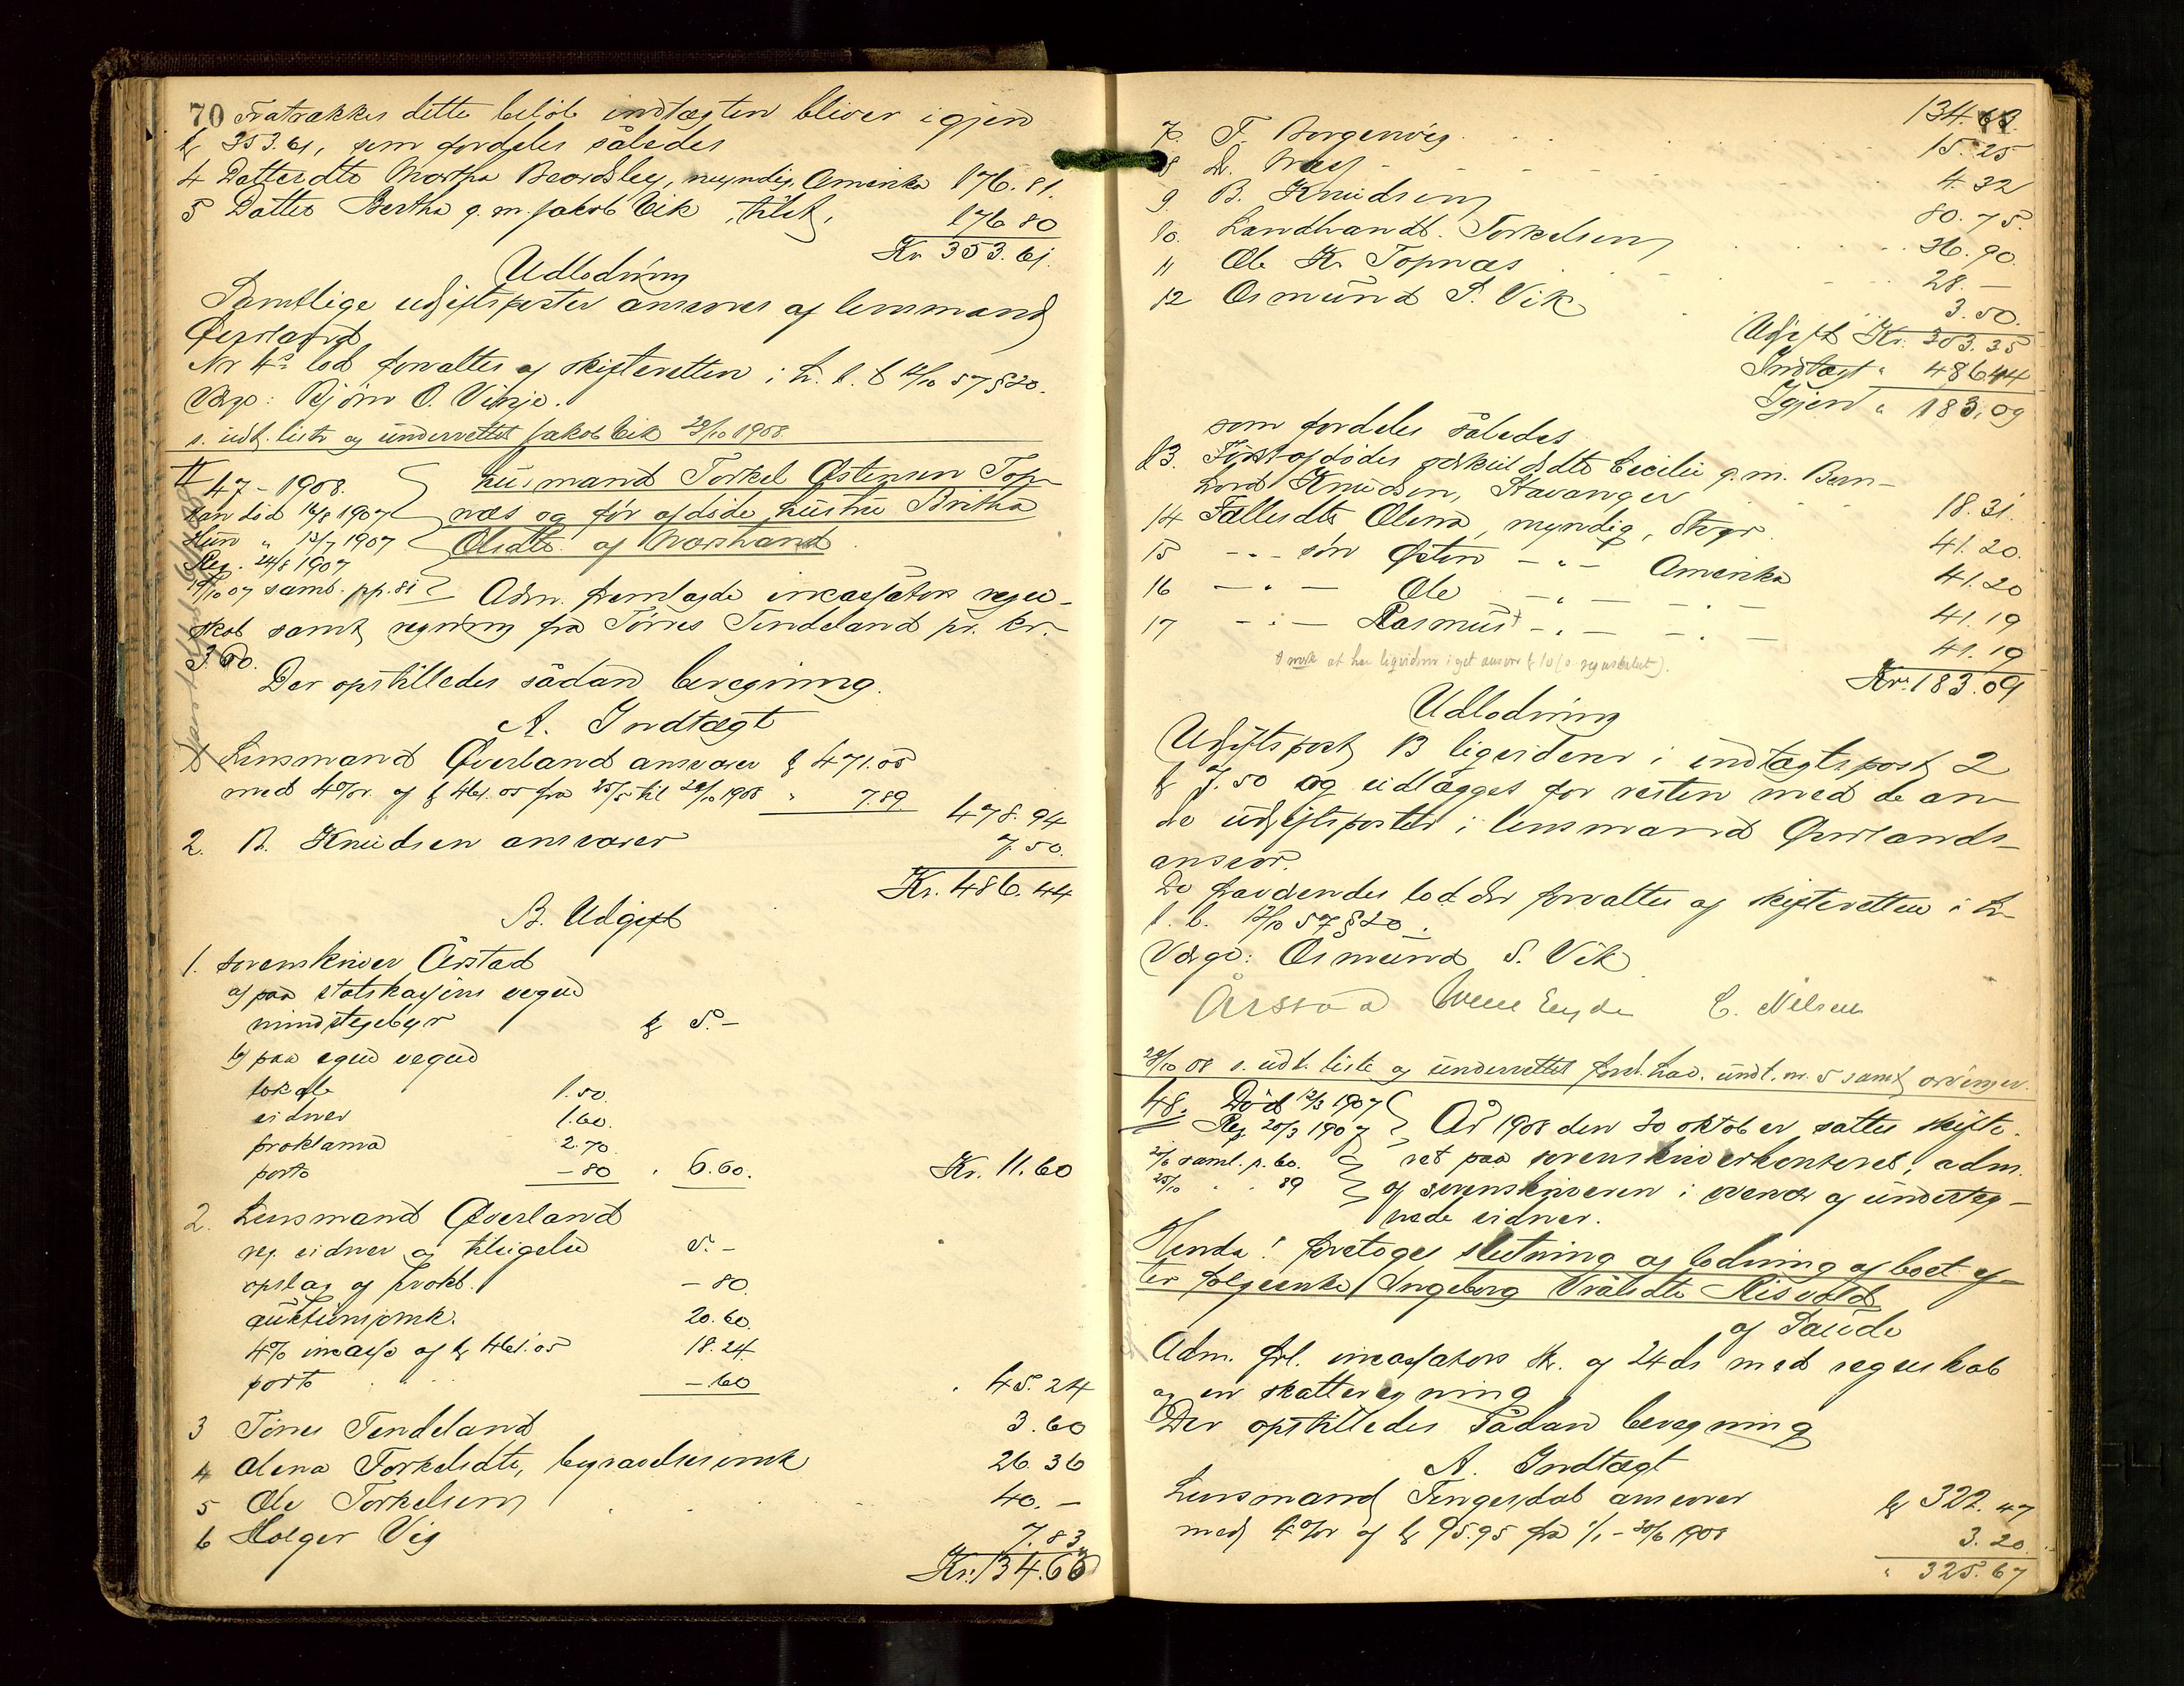 70 Fratrækkes dette beløb indtægten bliver igjen
kr 353.61, som fordeles således
4 Datterdtr Martha Beardsley, myndig, Amerika 176.81.
5 Datter Bertha g. m. Jakob Eik, tilst. 176.80
Kr. 353.61.
Udlodning
Samtlige udgiftsposter ansvares af lensmand
Øverland
Nr 4s lod forvaltes af skifteretten i h. t. l. 12/10 57 §20.
Værge: Bjørn O. Vinje.
s. udt. liste og underrettet Jakob Eik 29/10 1908.
47 - 1908.
Han død 16/8 1907
Hun " 13/7 1907
Reg. 24/8 1907
19/10 07 saml. pp. 81
husmand Torkel Østensen Top-
næs og før afdøde hustru Britha
Olsdtr. af Marvand.
Adm. fremlagde inkassators regn-
skab samt regning fra Tørres Tendeland pr. kr.
3.60.
Der opstilledes sådan beregning.
A. Indtægt
1 Lensmand Øverland ansvarer kr 471.05
med 4% af kr 461.05 fra 25/5 til 29/10 1908 " 7.89 478.94
2. B. Knudsen ansvarer 7.50.
Kr. 486.44
B. Udgift
1. sorenskriver Årstad
a) paa statskassens vegne
mindstegebyr kr 5.-
b) paa egne vegne
lokale 1.50.
vidner 1.60.
proklama 2.70.
porto -80 " 6.60. Kr. 11.60
2. Lensmand Øverland
reg. vidner og tilsigelse 5.-
opslag af prokl. -80.
auktionsomk. 20.60.
4% inkasso af kr 461.05 18.24.
porto -60 " 45.24
3 Tørres Tendeland 3.60
4 Olena Torkelsdtr, begravelsesomk 26.36
5 Ole Torkelsen 40.-
6 Holger Vig 7.83
Kr. 134.63
134.63.
7. T. Borgenvig 15.25
8 D. Wæg 4.32
9. B. Knudsen 80.75.
10. Landhandl. Torkelsen 36.90.
11 Ole K. Topnæs 28.-
12 Osmund S. Vik 3.50.
Udgift Kr. 303.35
Indtægt " 486.44
Igjen " 183.09
som fordeles således
13. Førstafdødes Cecilie g. m. Bern-
hard Knudsen, Stavanger 18.31.
14 Fællesdtr Olena, myndig, Stvgr. 41.20.
15 - " - søn Østen - " - Amerika 41.20
16 - " - Ole - " - - " - 41.19
17 - " - Rasmus - " - - " - 41.19
Kr. 183.09
Udlodning
Udgiftspost 13 ligviderer i indtægtspost 2
kr 7.50 og udlægges for resten med de an-
dre udgiftsposter i lensmand Øverlands
ansvar.
De fraværendes lodder forvaltes af skifteretten i h.
t. l. 12/10 57 §20.
Værge: Osmund S. Vik
Årstad C. Nilsen
29/10 08 s. udt. liste og underrettet ford. hav. undt. nr. 5 samt arvinger.
48. Død 12/3 1907
Reg. 20/3 1907
20/6 saml. p. 60.
25/10 " " 89
År 1908 den 30 oktober sattes skifte-
ret paa sorenskriverkontoret, adm.
af sorenskriveren i overvær af underteg-
nede vidner.
Hvorda! foretoges slutning og lodning af boet ef-
ter føgeenke Ingeborg Viråksdtr Risvold
af Saude
Adm. frl. inkassators skr. af 24ds med regnskab
og en skatteregning
Der opstilledes sådan beregning
A. Indtægt
Lensmand Tengesdal ansvarer kr 322.47
med 4% af kr 95.95 fra 1/1 - 30/6 1908 3.20
" 325.67